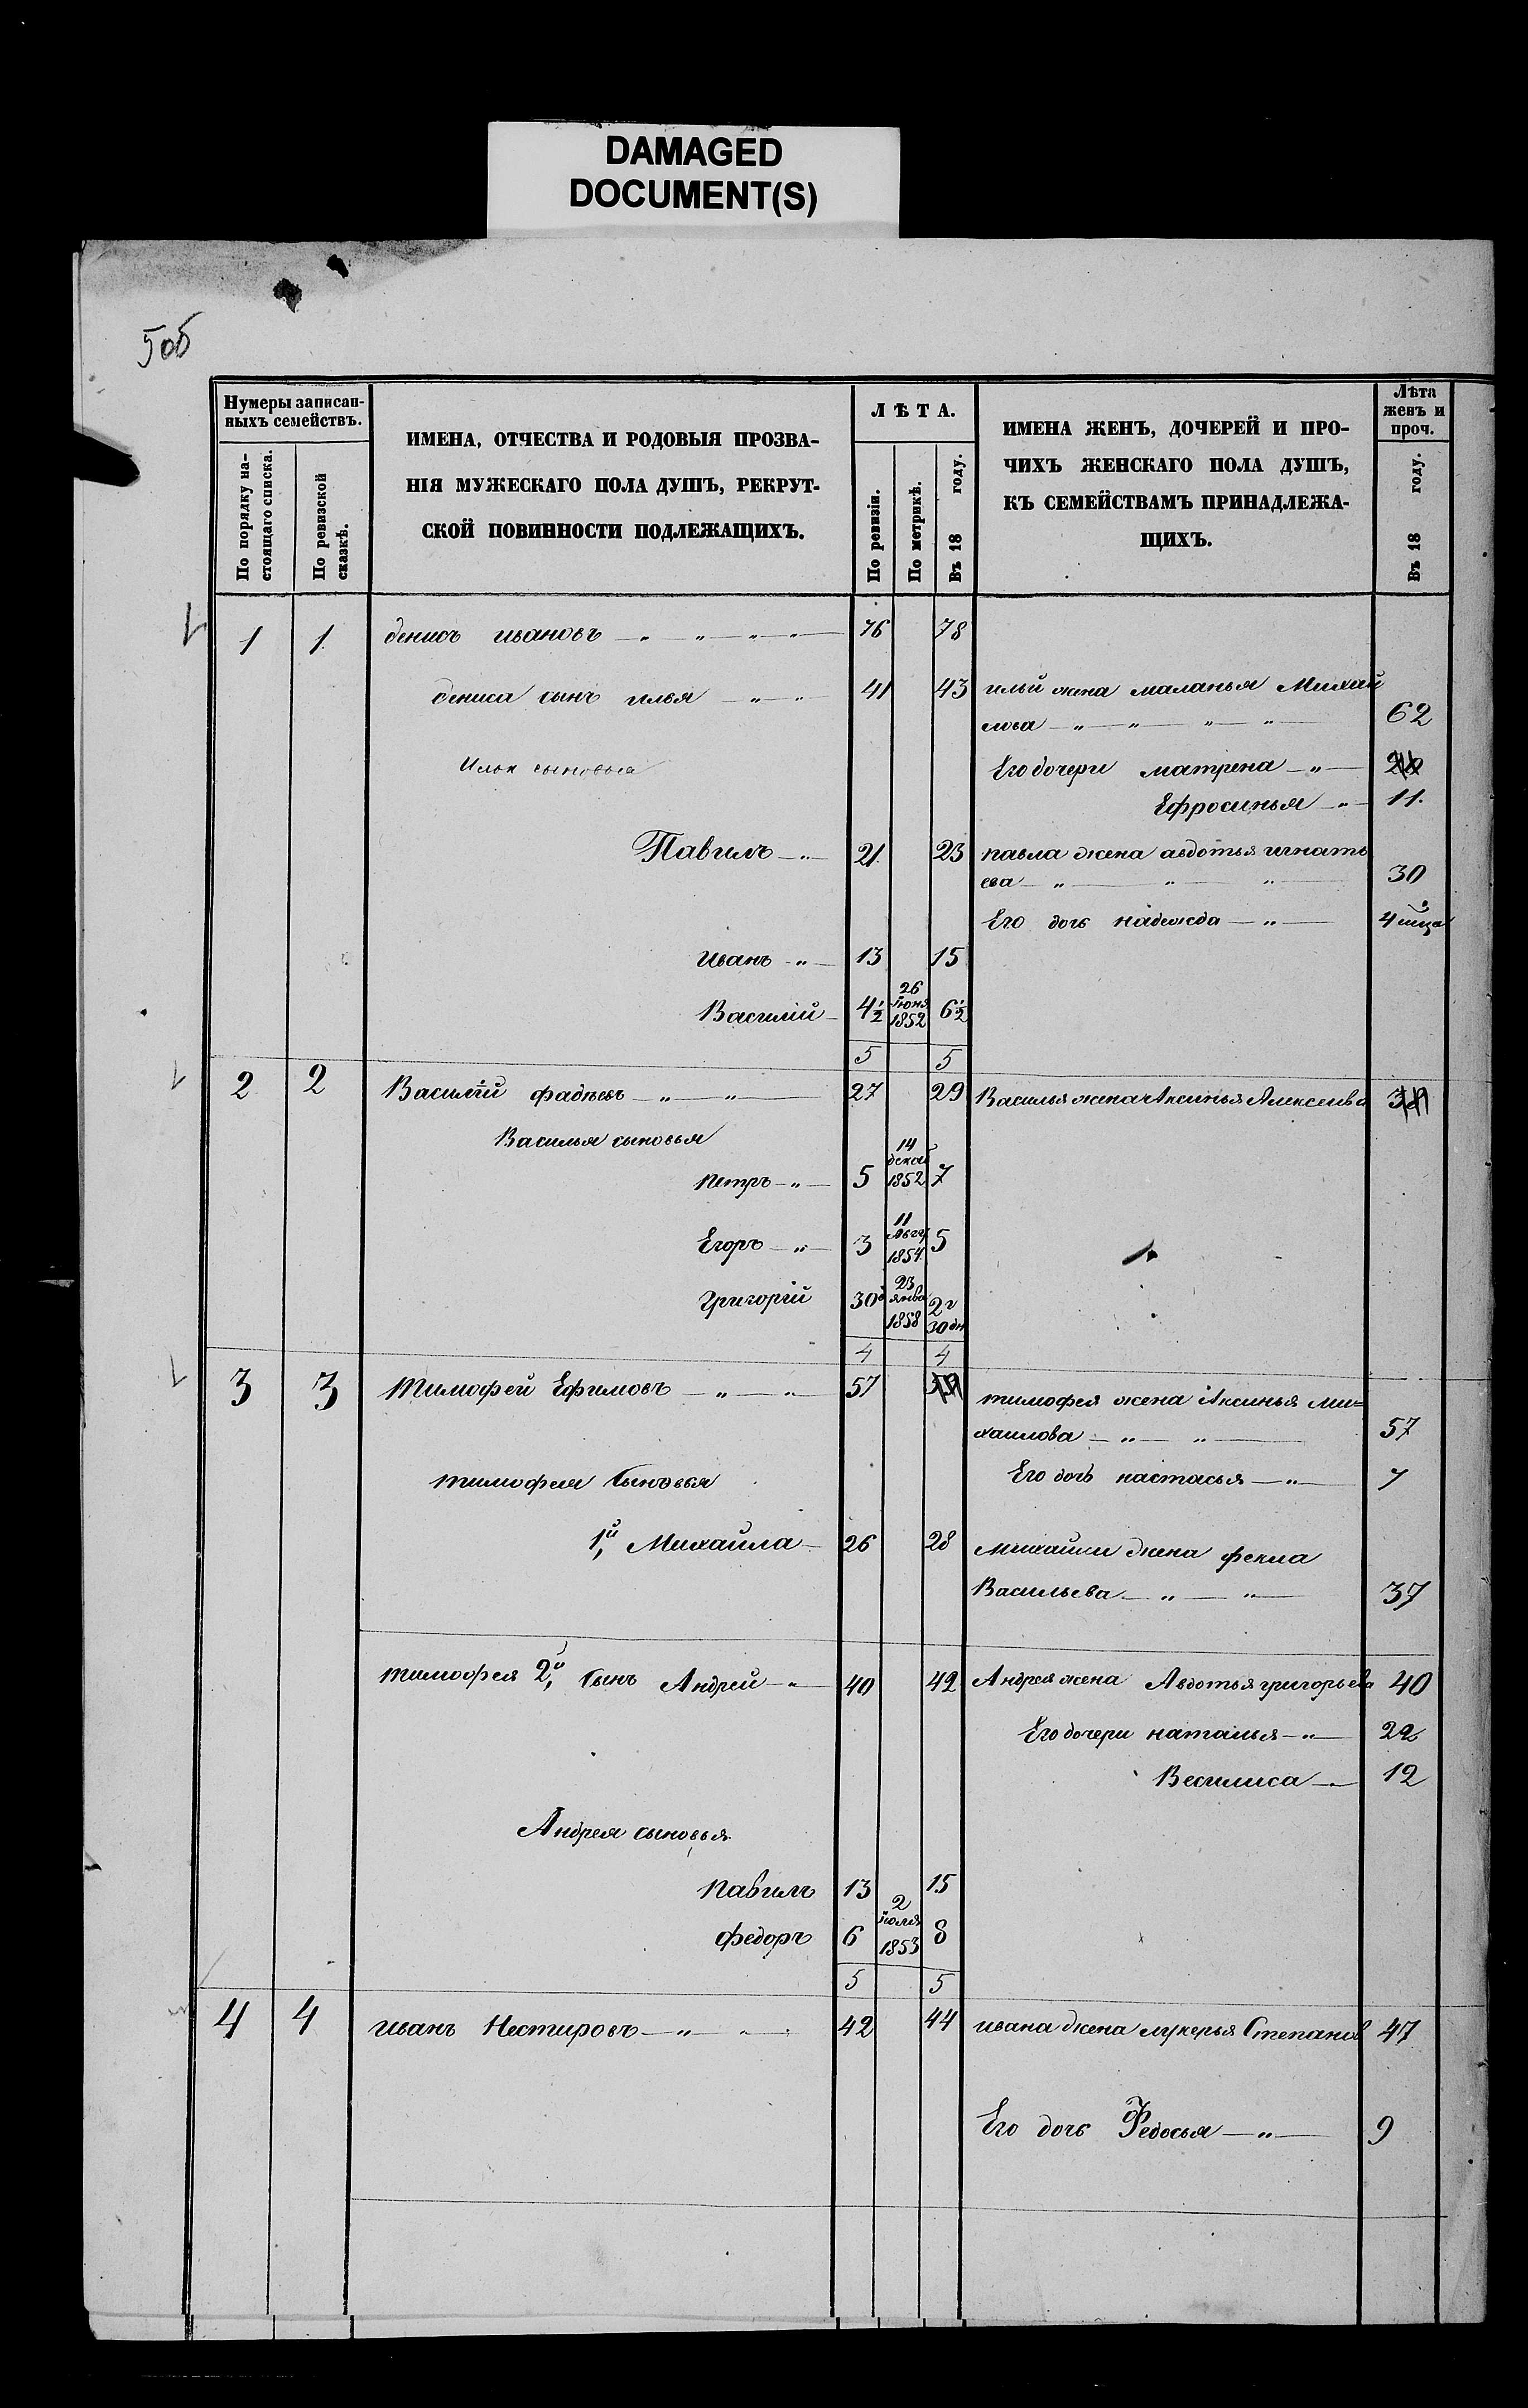 DAMAGED
DOCUMENT(S)
5об
Нумеры записан-
ныхъ семействъ.
По порядку на-
стоящаго списка.
По ревизской
сказкѣ.
ИМЕНА, ОТЧЕСТВА И РОДОВЫЯ ПРОЗВА-
НІЯ МУЖЕСКАГО ПОЛА ДУШЪ, РЕКРУТ-
СКОЙ ПОВИННОСТИ ПОДЛЕЖАЩИХЪ.
ЛѢТА.
По ревизіи.
По метрикѣ.
Въ 18 году.
ИМЕНА ЖЕНЪ, ДОЧЕРЕЙ И ПРО-
ЧИХЪ ЖЕНСКАГО ПОЛА ДУШЪ,
КЪ СЕМЕЙСТВАМЪ ПРИНАДЛЕЖА-
ЩИХЪ.
Лѣта
женъ и
проч.
Въ 18 году.
1 1 денисъ ивановъ — „ — „ — „ — „ — 76 78
дениса сынъ илья — „ — „ 41 43 ильи жена маланья Михай
лова — „ — „ — „ — „ — 62
Ильи сыновья Его дочери матрена — „ —
Ефросинья — „ — 11.
Павилъ — „ — 21 23 павла жена авдотья игнать
ева — „ — „ — „ — 30
Его дочь надежда — „ — 4 мѣца
иванъ — „ — 13 15
Василій — 4½ 26 Іюня 1852 6½
5 5
2 2 Василій фадѣевъ — „ — „ — 27 29 Василья жена Аксинья Алексеива
Василья сыновья
петръ — „ — 5 14 декаб 1852 7
Егоръ — „ — 3 11 Авгу 1854 5
григорій 30д 23 янва 1858 2г 30дн
4 4
3 3 тимофей Ефимовъ — „ — „ 57 тимофея жена Аксинья ми=
хаилова — „ — „ — 57
тимофея сыновья Его дочь настасья — „ — 7
1,й Михайла — 26 28 михайлы жена фекла
Васильева — „ — „ — 37
тимофея 2,й сынъ Андрей — „ — 40 42 Андрея жена Авдотья григорьева 40
Его дочери наталья — „ — 22
Весилиса — „ — 12
Андрея сыновья
павилъ 13 15
федоръ 6 2 іюля 1853 8
5 5
4 4 иванъ Нестировъ — „ — „ — 42 44 ивана жена лукерья Степанов 47
Его дочь Федосья — „ — 9